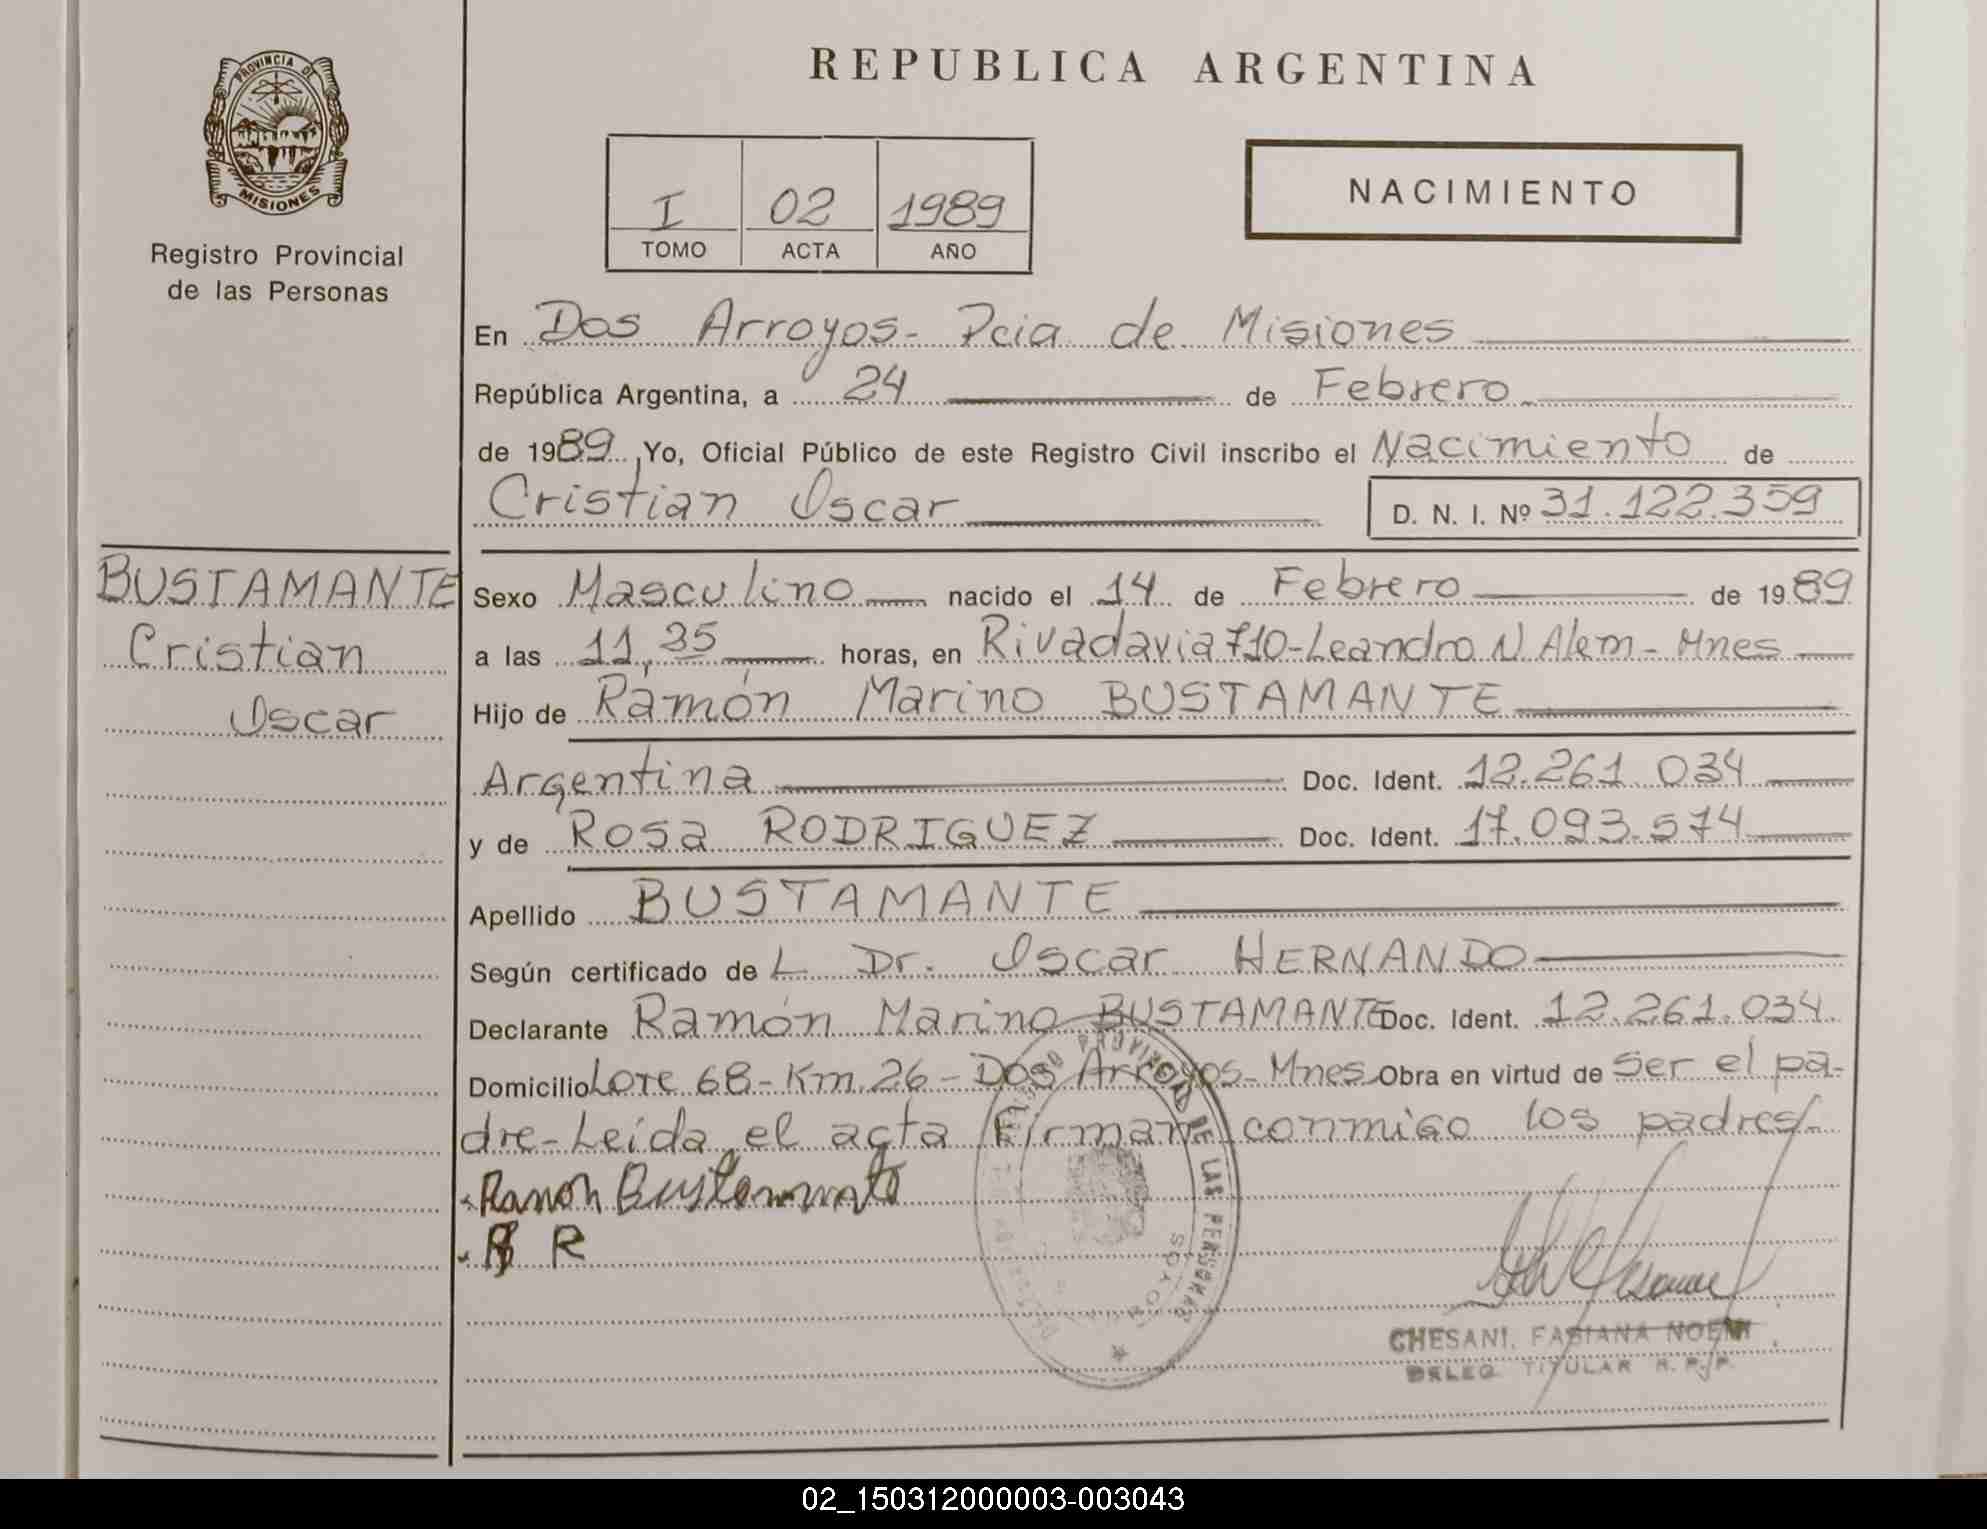 REPUBLICA ARGENTINA
PROVINCIA DE
MISIONES
Registro Provincial
de las Personas
I 02 1989
TOMO ACTA AÑO
NACIMIENTO
En Dos Arroyos - Pcia de Misiones
República Argentina, a 24 de Febrero
de 1989 Yo, Oficial Público de este Registro Civil inscribo el Nacimiento de
Cristian Oscar D. N. I. Nº 31.122.359
BUSTAMANTE
Cristian
Oscar
Sexo Masculino nacido el 14 de Febrero de 1989
a las 11,35 horas, en Rivadavia 710-Leandro N Alem - Mnes
Hijo de Ramón Marino BUSTAMANTE
Argentina Doc. Ident. 12.261.034
y de Rosa RODRIGUEZ Doc. Ident. 17.093.574
Apellido BUSTAMANTE
Según certificado de L. Dr. Oscar HERNANDO
Declarante Ramón Marino BUSTAMANTE Doc. Ident. 12.261.034
Domicilio Lote 68 - Km. 26 - Dos Arroyos - Mnes Obra en virtud de ser el pa-
dre - Leída el acta Firman conmigo los padres.-
Ramon Bustamante
R R
PROVINCIAL DE LAS PERSONAS
ARROYOS
CHESANI, FABIANA NOEMI
DELEG. TITULAR R. P. P.
02_150312000003-003043